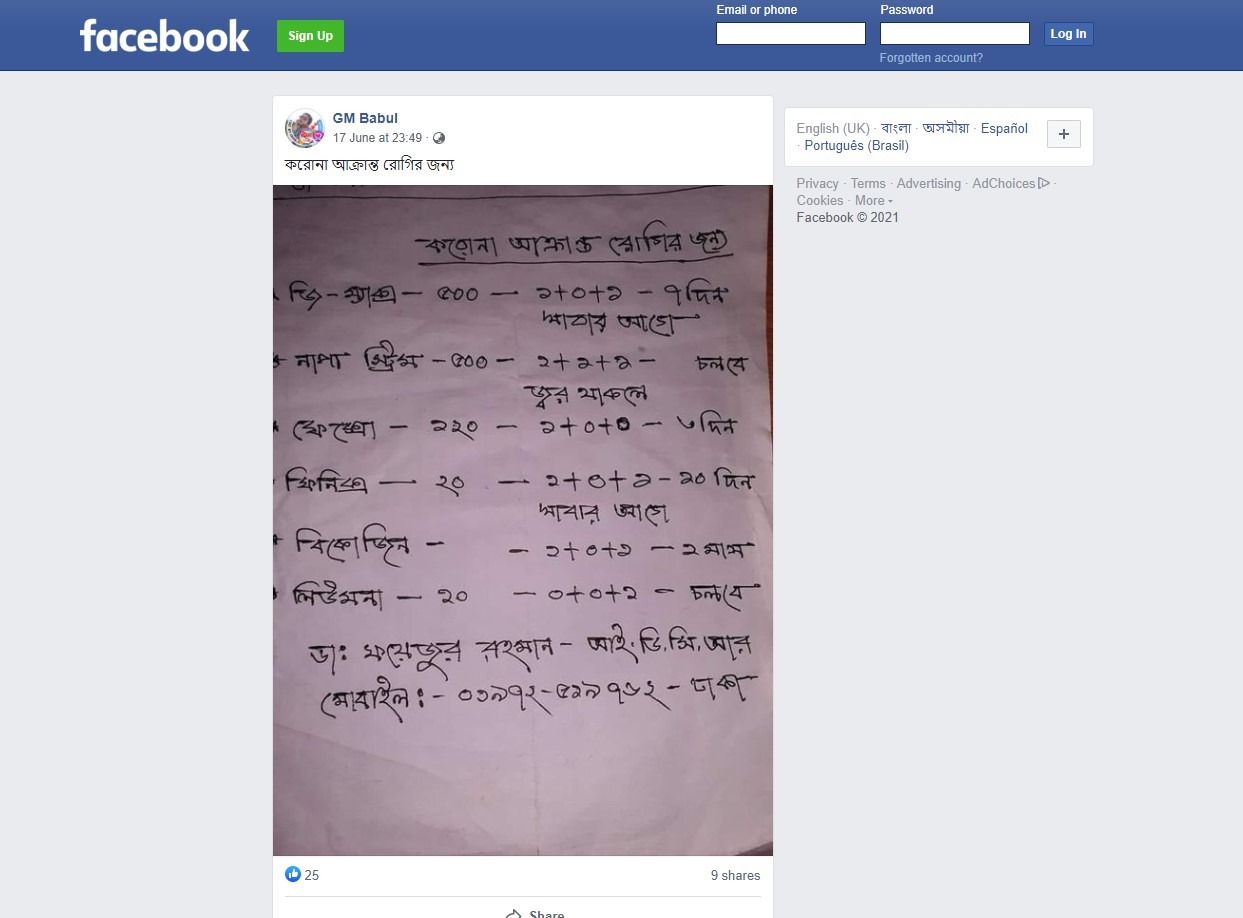 facebook
Sign Up
Email or phone
Password
Log In
Forgotten account?
GM Babul
17 June at 23:49 ·
করোনা আক্রান্ত রোগির জন্য
করোনা আক্রান্ত রোগির জন্য
জি-ম্যাক্স – ৫০০ — ১+০+১ – ৭ দিন
খাবার আগে
নাপা – ৫০০ – ১+১+১ – চলবে
জ্বর থাকলে
ফেক্সো – ১২০ – ১+০+০ – ৬ দিন
ফিনিক্স — ২০ — ১+০+১ – ১০ দিন
খাবার আগে
বিকোজিন – – ১+০+১ – ২ মাস
লিউমনা – ১০ – ০+০+১ – চলবে
ডাঃ ফয়েজুর রহমান – আই.ডি.সি.আর
মোবাইল :- – ঢাকা
25
9 shares
Share
English (UK) · বাংলা · অসমীয়া · Español
· Português (Brasil)
+
Privacy · Terms · Advertising · AdChoices ·
Cookies · More
Facebook © 2021